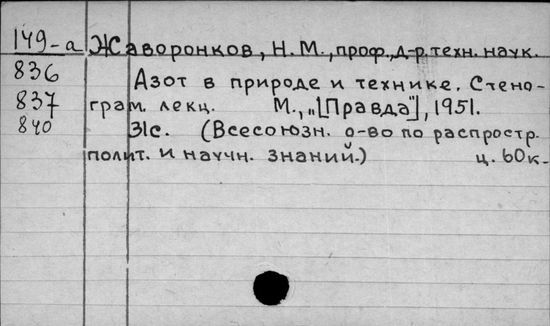 149-а Жаворонков, Н.М., проф., д-р. техн. наук.
836 Азот в природе и технике. Стено-
837 грам. лекц. М., „[Правда"], 1951.
840 31с. (Всесоюзн. о-во по распростр.
полит. и научн. знаний.) ц. 60к.